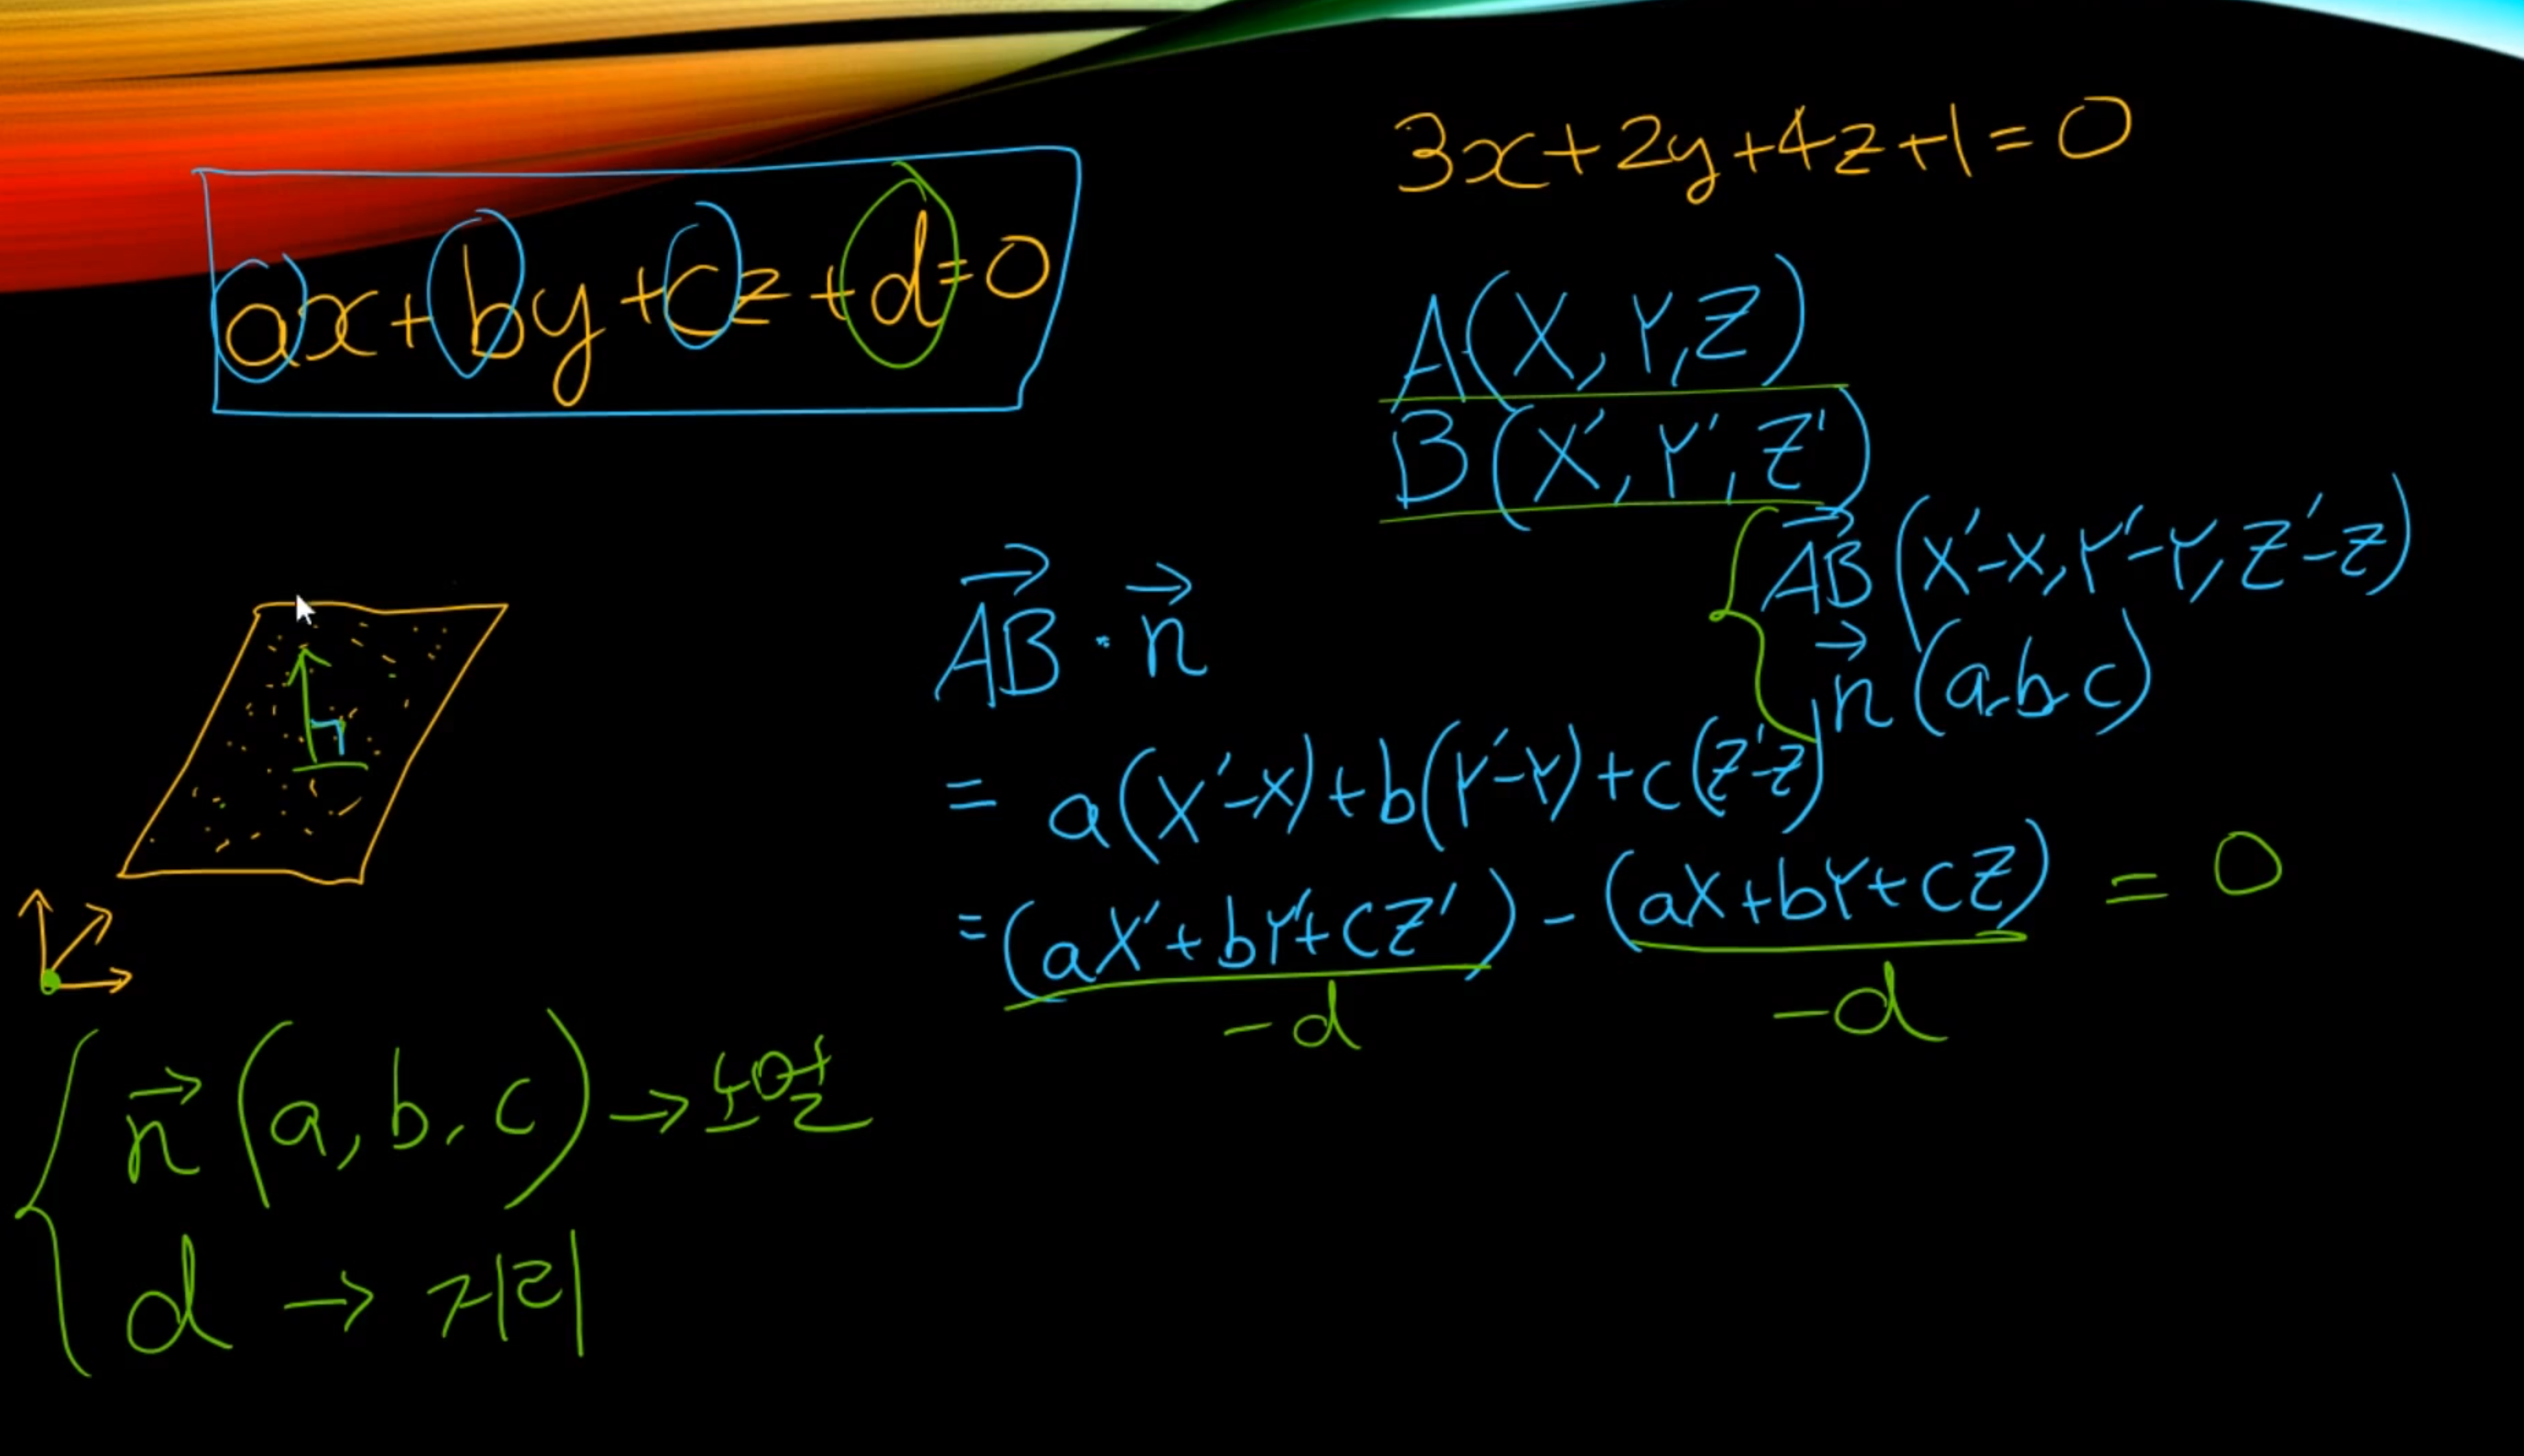 ax+by+cz+d=0
3x+2y+4z+1=0
A(X,Y,Z)
B(X',Y',Z')
AB(X'-X,Y'-Y,Z'-Z)
n(a,b,c)
AB·n
=a(X'-X)+b(Y'-Y)+c(Z'-Z)
=(aX'+bY'+cZ')-(aX+bY+cZ)=0
-d
-d
n(a,b,c)→방향
d→거리